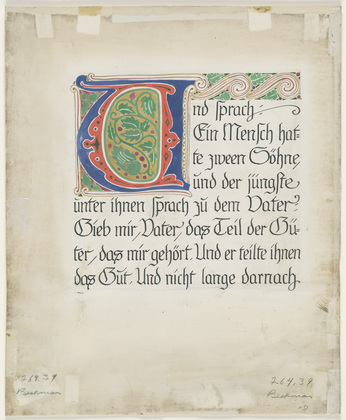 Und sprach:
Ein Mensch hat-
te zween Söhne
und der jüngste
unter ihnen sprach zu dem Vater:
Gieb mir, Vater, das Teil der Gü-
ter, das mir gehört. Und er teilte ihnen
das Gut. Und nicht lange darnach
269.39
Beckman
269.39
Beckman